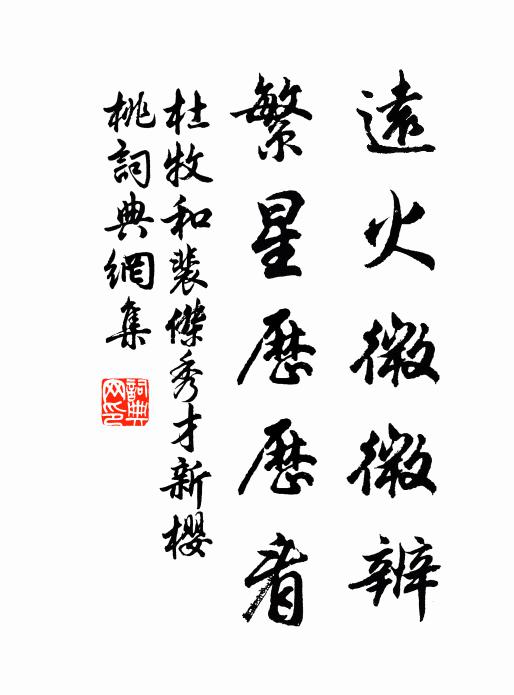 遠火微微辨
繁星歷歷看
杜牧和裴傑秀才新櫻
桃詞典網集
詞典網印